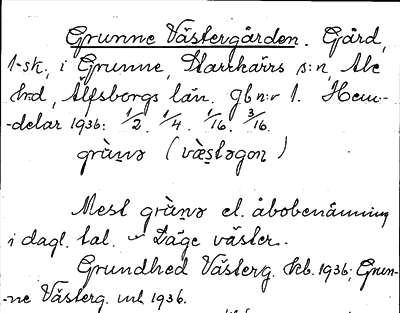 Grunne Västergården. Gård,
1-sk, i Grunne, Starrkärrs s:n, Ale
hrd, Älfsborgs län. Gb n:r 1. Hem-
-delar 1936: 1/2. 1/4. 1/16. 3/16.
grùn̥ə (væ̀stəgoṇ)
Mest grùn̥ə el. åbobenämning
i dagl. tal. – Läge väster.
Grundhed Västerg. kb. 1936; Grun-
-ne Västerg. ml 1936.